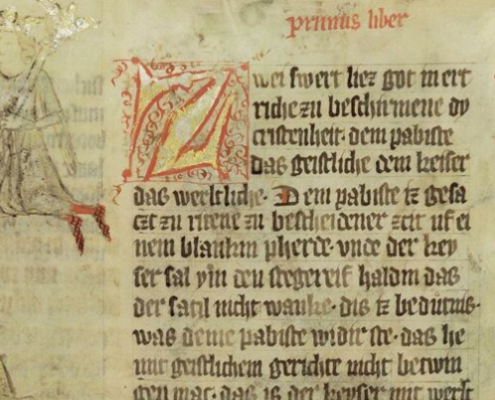 primus liber
Zwei swert liez got in ert
riche zu beschirmene dy
cristenheit· dem pabiste
das geistliche dem keiser
das werltliche· Dem pabiste iz gesa
czt zu ritene zu bescheidener zcit uf ei
nem blankin pherde· vnde der key
ser sal ym den stegereif haldin das
der satil nicht wanke· dis iz bedutnis·
was deme pabiste widir ste· das he
mit geistlichem gerichte nicht betwin
gen mac· das is der keyser mit werlt